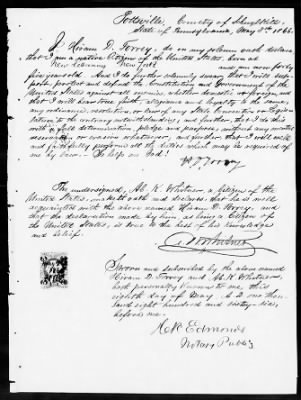 Pottsville, County of Schuylkill
State of Pennsylvania, May 8th 1866.
I Hiram D. Torrey, do on my solemn oath declare
that I am a native Citizen of the United States, born at
New Lebanon, New York and am now forty
five years old. And I do further solemnly swear that I will sup-
port, protect and defend the Constitution and Government of the
United States against all enemies, whether domestic or foreign, and
that I will bear true faith, allegiance and loyalty to the same,
any ordinance, resolution, or law of any State, Convention or Legis-
lature to the contrary notwithstanding; and further, that I do this
with a full determination, pledge and purpose, without any mental
reservation or evasion whatsoever, and further, that I will well
and faithfully perform all the duties which may be required of
me by law. So help me God!
H D Torrey
The undersigned, Ab. K. Whitner, a Citizen of the
United States, maketh oath and declares that he is well
acquainted with the above named Hiram D. Torrey, and
that the declaration made by him, as being a Citizen of
the United States, is true to the best of his Knowledge
and belief.
A K Whitner
Sworn and subscribed by the above named
Hiram D. Torrey and Ab. K. Whitner,
both personally known to me, this
eighth day of May, A.D one thou-
sand eight hundred and sixty-six,
before me.
Edmonds
Notary Public